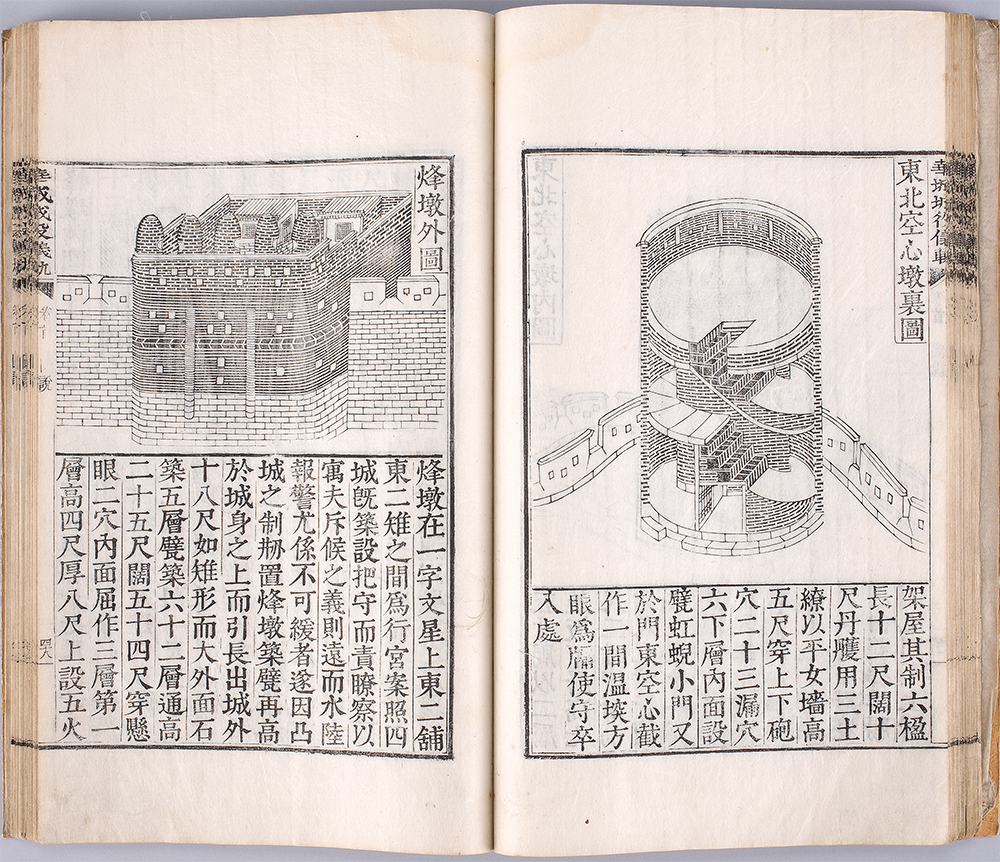 東北空心墩裏圖
架屋其制六楹
長十二尺闊十
尺丹雘用三土
繚以平女墻高
五尺穿上下砲
穴二十三漏穴
六下層內面設
甓虹蜺小門又
於門東空心截
作一間溫堗方
眼爲牖使守卒
入處
烽墩外圖
烽墩在一字文星上東二舖
東二雉之間爲行宮案照四
城旣築設把守而責瞭察以
寓夫斥候之義則遠而水陸
報警尤係不可緩者遂因凸
城之制刱置烽墩築甓再高
於城身之上而引長出城外
十八尺如雉形而大外面石
築五層甓築六十二層通高
二十五尺闊五十四尺穿懸
眼二穴內面屈作三層第一
層高四尺厚八尺上設五火
華城城役儀軌